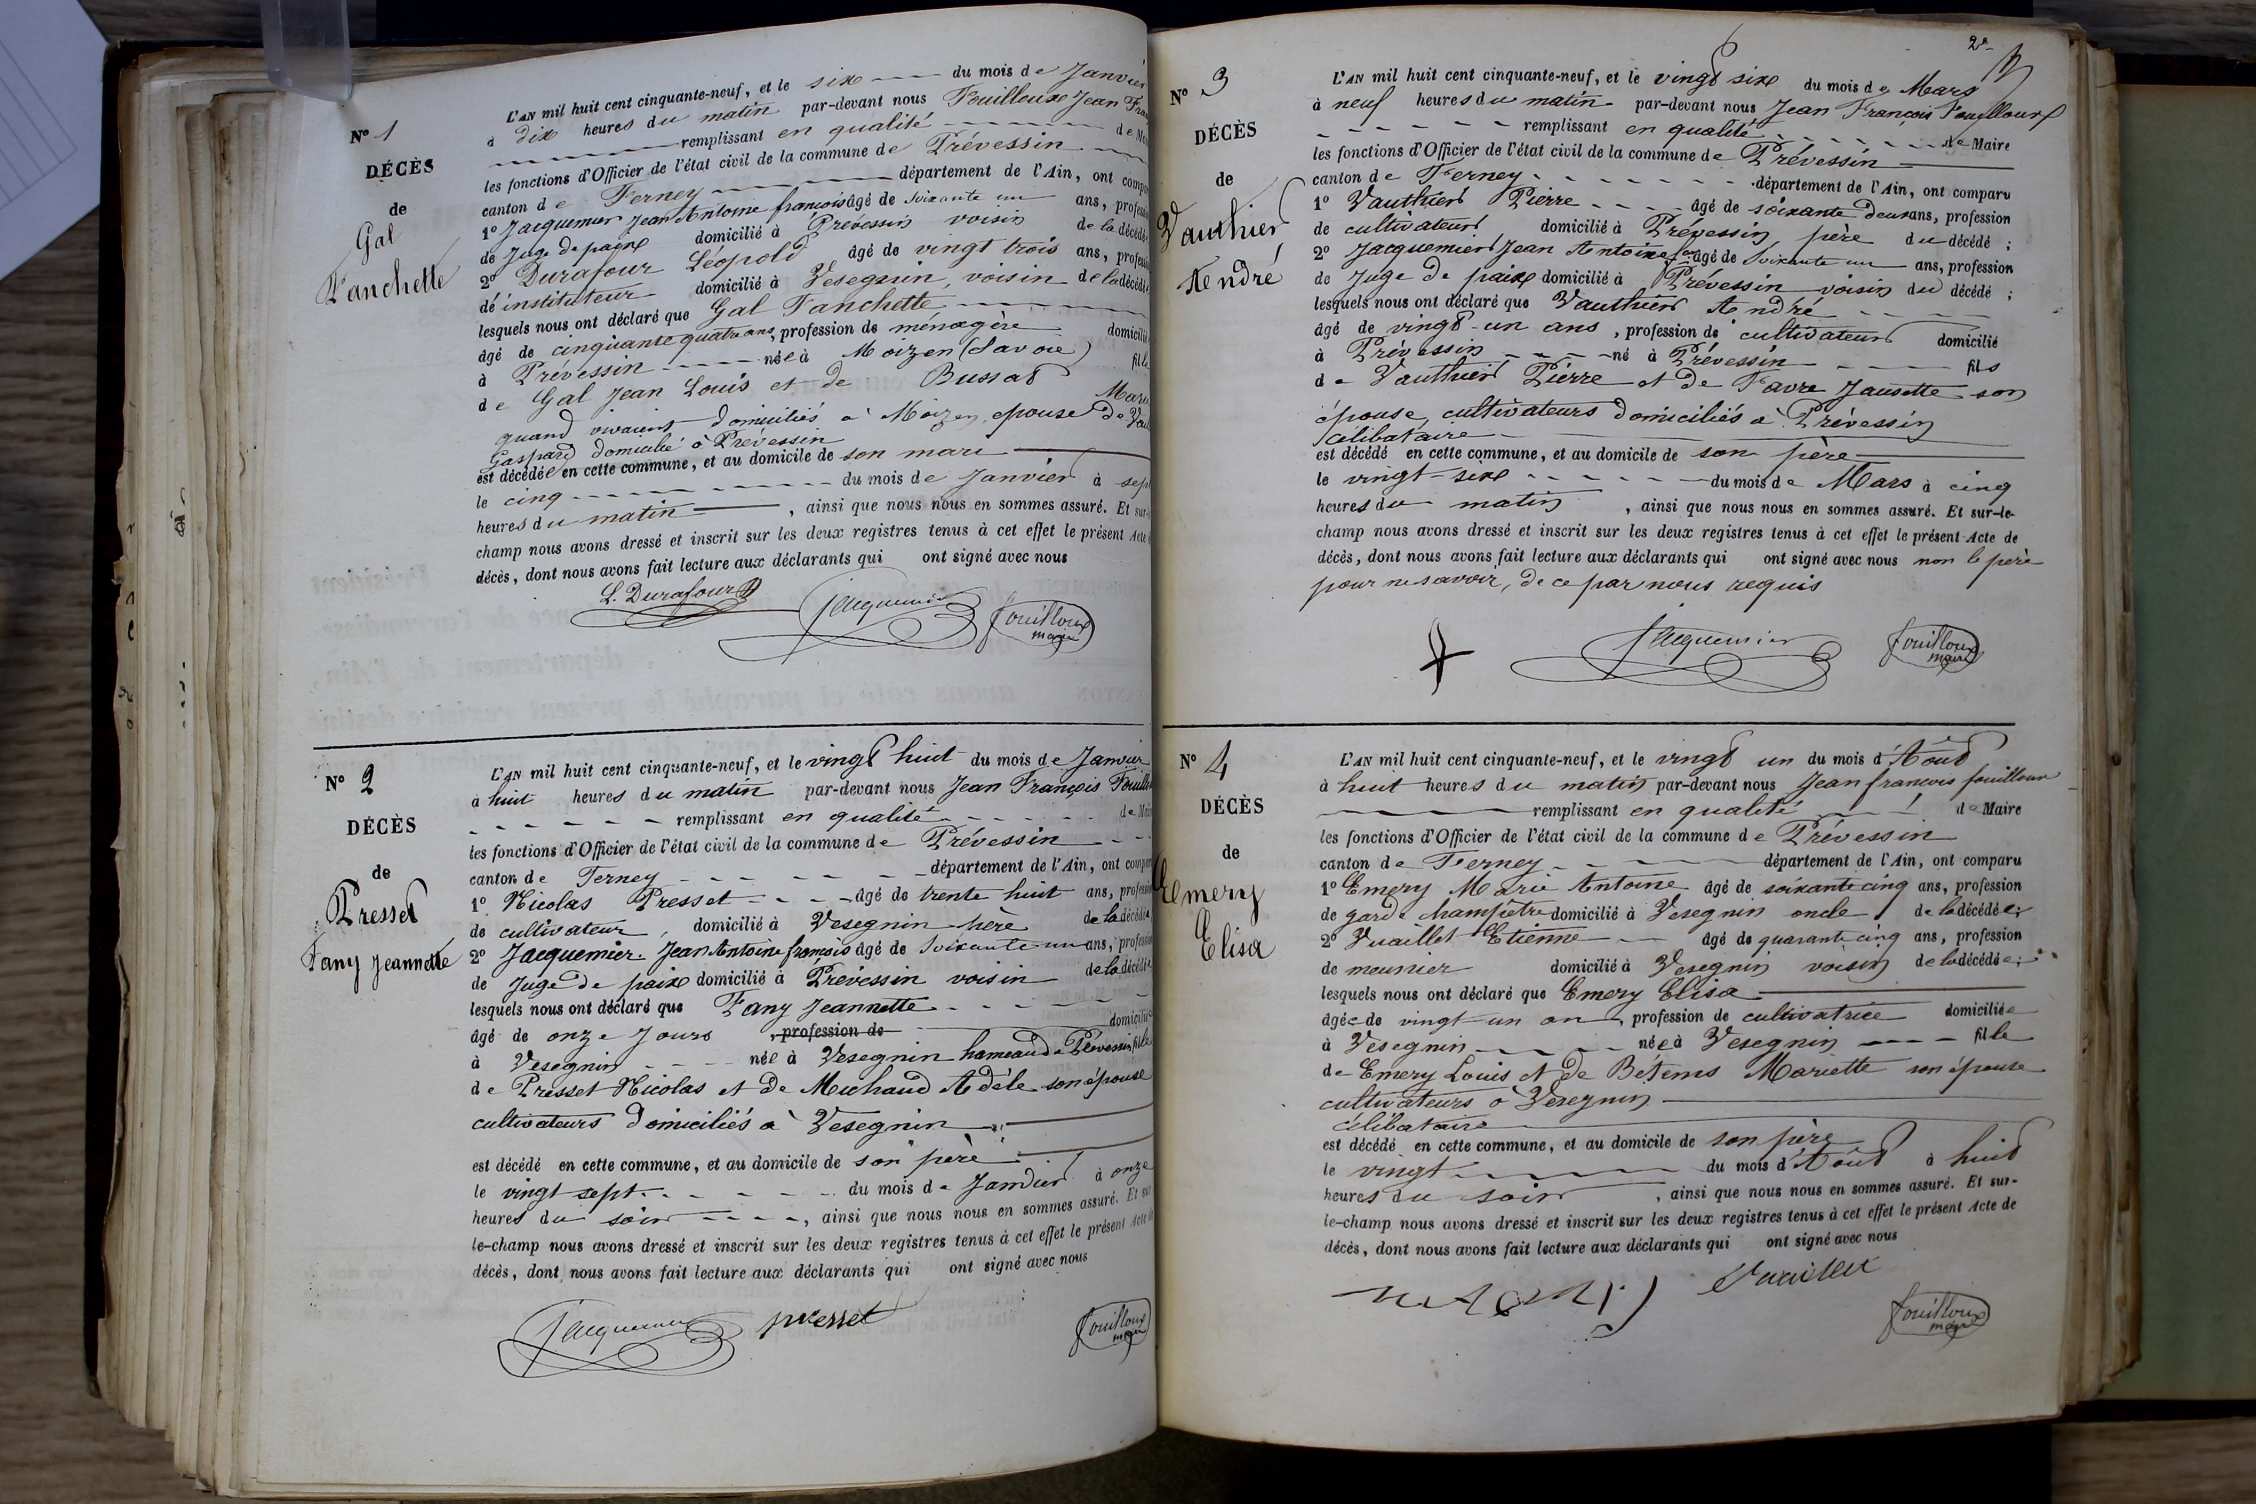 N° 1
DÉCÈS
de
Gal
Fanchette
L'AN mil huit cent cinquante-neuf, et le six du mois de Janvier
à dix heures du matin par-devant nous Fouilloux Jean Fran
remplissant en qualité de Mai
les fonctions d'Officier de l'état civil de la commune de Prévessin
canton de Ferney département de l'Ain, ont compa
1° Jacquemier Jean Antoine françois âgé de soixante un ans, profession
de Juge de paix domicilié à Prévessin voisin de la décédée
2° Durafour Léopold âgé de vingt trois ans, profession
dé instituteur domicilié à Vesegnin, voisin de la décédée
lesquels nous ont déclaré que Gal Fanchette
âgé de cinquante quatre ans, profession de ménagère domicilié
à Prévessin née à Moizen (Savoie) fille
de Gal Jean Louis et de Bussat Marie
quand vivaient domiciliés à Moizen, épouse de
Gaspard domicilié à Prévessin
est décédée en cette commune, et au domicile de son mari
le cinq du mois de Janvier à sept
heures du matin, ainsi que nous nous en sommes assuré. Et sur-
champ nous avons dressé et inscrit sur les deux registres tenus à cet effet le présent Acte
décès, dont nous avons fait lecture aux déclarants qui ont signé avec nous
L. Durafour Jacquemier fouilloux
maire
N° 2
DÉCÈS
de
Presset
Fany Jeannette
L'AN mil huit cent cinquante-neuf, et le vingt huit du mois de Janvier
à huit heures du matin par-devant nous Jean François Fouill
remplissant en qualité de Mai
les fonctions d'Officier de l'état civil de la commune de Prévessin
canton de Ferney département de l'Ain, ont compa
1° Nicolas Presset âgé de trente huit ans, profession
de cultivateur, domicilié à Vesegnin père de la décédée
2° Jacquemier Jean Antoine françois âgé de soixante un ans, profession
de Juge de paix domicilié à Prévessin voisin de la décédée
lesquels nous ont déclaré que Fany Jeannette
âgé de onze Jours profession de domiciliée
à Vesegnin née à Vesegnin hameau de Prévessin fille
de Presset Nicolas et de Michaud Adèle son épouse
cultivateurs domiciliés à Vesegnin
est décédé en cette commune, et au domicile de son père
le vingt sept du mois de Janvier à onze
heures du soir, ainsi que nous nous en sommes assuré. Et sur
le-champ nous avons dressé et inscrit sur les deux registres tenus à cet effet le présent Acte de
décès, dont nous avons fait lecture aux déclarants qui ont signé avec nous
Jacquemier presset fouilloux
maire
2e
N° 3
DÉCÈS
de
Vauthier
André
L'AN mil huit cent cinquante-neuf, et le vingt six du mois de Mars
à neuf heures du matin par-devant nous Jean François Fouilloux
remplissant en qualité de Maire
les fonctions d'Officier de l'état civil de la commune de Prévessin
canton de Ferney département de l'Ain, ont comparu
1° Vauthier Pierre âgé de soixante deux ans, profession
de cultivateur domicilié à Prévessin, père du décédé ;
2° Jacquemier Jean Antoine fois âgé de soixante un ans, profession
de Juge de paix domicilié à Prévessin voisin du décédé ;
lesquels nous ont déclaré que Vauthier André
âgé de vingt-un ans, profession de cultivateur domicilié
à Prévessin né à Prévessin fils
de Vauthier Pierre et de Favre Jausette son
épouse, cultivateurs domiciliés à Prévessin
célibataire
est décédé en cette commune, et au domicile de son père
le vingt-six du mois de Mars à cinq
heures du matin, ainsi que nous nous en sommes assuré. Et sur-le-
champ nous avons dressé et inscrit sur les deux registres tenus à cet effet le présent Acte de
décès, dont nous avons fait lecture aux déclarants qui ont signé avec nous non le père
pour ne savoir, de ce par nous requis
Jacquemier fouilloux
maire
N° 4
DÉCÈS
de
Emery
Elisa
L'AN mil huit cent cinquante-neuf, et le vingt un du mois d'Août
à huit heures du matin par-devant nous Jean françois fouilloux
remplissant en qualité de Maire
les fonctions d'Officier de l'état civil de la commune de Prévessin
canton de Ferney département de l'Ain, ont comparu
1° Emery Marie Antoine âgé de soixante cinq ans, profession
de garde champêtre domicilié à Vesegnin oncle de la décédée;
2° Vuaillet Etienne âgé de quarante cinq ans, profession
de meunier domicilié à Vesegnin voisin de la décédée;
lesquels nous ont déclaré que Emery Elisa
âgée de vingt-un an, profession de cultivatrice domiciliée
à Vesegnin née à Vesegnin fille
de Emery Louis et de Bétems Mariette son épouse
cultivateurs à Vesegnin
célibataire
est décédé en cette commune, et au domicile de son père
le vingt du mois d'Août à huit
heures du soir, ainsi que nous nous en sommes assuré. Et sur-
le-champ nous avons dressé et inscrit sur les deux registres tenus à cet effet le présent Acte de
décès, dont nous avons fait lecture aux déclarants qui ont signé avec nous
Vuaillet
fouilloux
maire